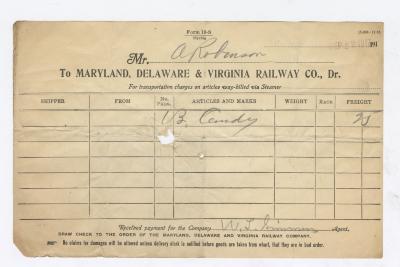 Form 18-S
191
Mr. A Robinson
To MARYLAND, DELAWARE & VIRGINIA RAILWAY CO., Dr.
For transportation charges on articles way-billed via Steamer
SHIPPER FROM No. Pkgs. ARTICLES AND MARKS WEIGHT RATE FREIGHT
1 B. Candy 25
Received payment for the Company Agent.
DRAW CHECK TO THE ORDER OF THE MARYLAND, DELAWARE AND VIRGINIA RAILWAY COMPANY.
No claims for damages will be allowed unless delivery clerk is notified before goods are taken from wharf, that they are in bad order.